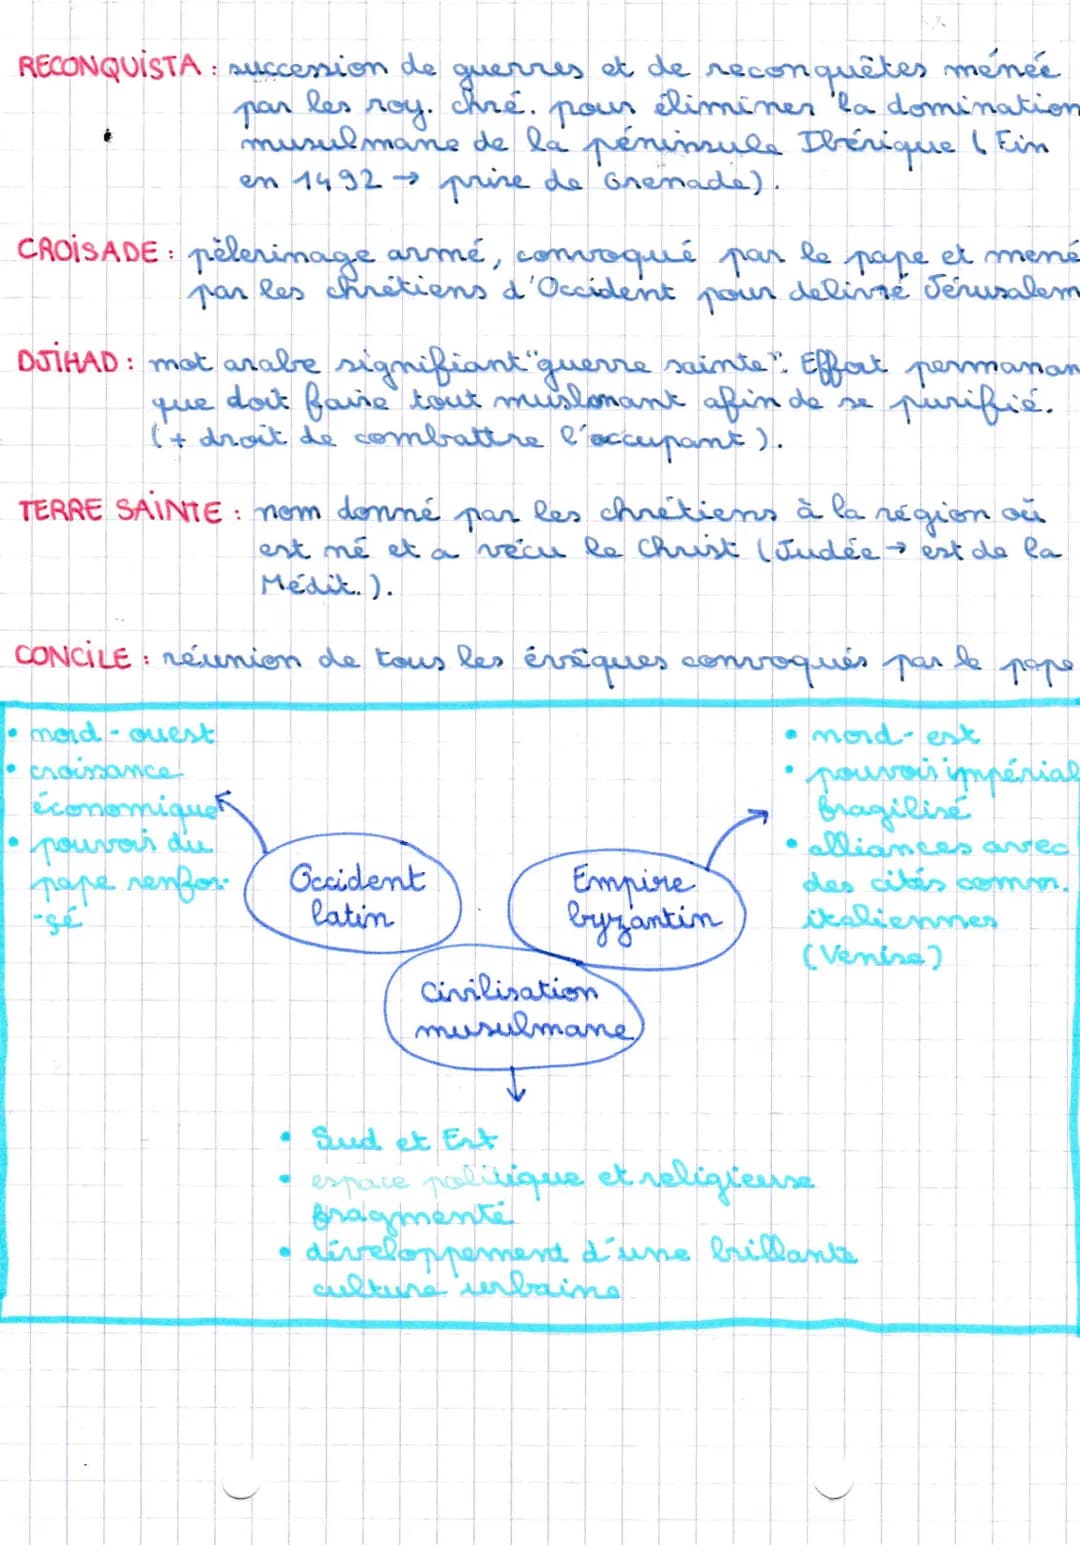 RECONQUISTA : succession de guerres et de reconquêtes ménée
par les roy. chré. pour éliminer la domination
musulmane de la péninsule Ibérique (Fin
en 1492 → prise de Grenade).
CROISADE : pèlerinage armé, convoqué par le pape et mené
par les chrétiens d'Occident pour délivré Jérusalem
DJIHAD : mot arabe signifiant "guerre sainte". Effort permanan
que doit faire tout muslmant afin de se purifié.
(+ droit de combattre l'occupant).
TERRE SAINTE : nom donné par les chrétiens à la région où
est né et a vécu le Christ (Judée → est de la
Médit.).
CONCILE : réunion de tous les évêques convoqués par le pape
• nord-ouest
• croissance
économique
• pouvoir du
pape renfor-
-sé
Occident
latin
Empire
byzantin
• nord-est
• pouvoir impérial
fragilisé
• alliances avec
des cités comm.
italiennes
(Venise)
Civilisation
musulmane
• Sud et Est
• espace politique et religieuse
fragmenté
• développement d'une brillante
culture urbaine